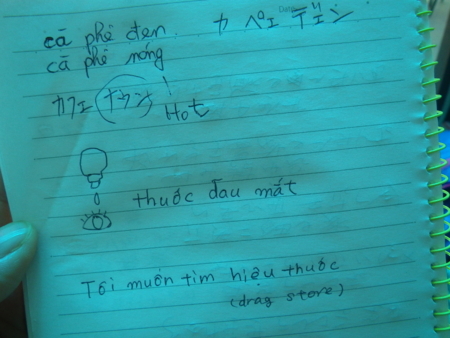 cà phê đen カ ペエ デェン
cà phê nóng
カフェ ナウン Hot
thuốc đau mắt
Tôi muốn tìm hiệu thuốc
(drag store)